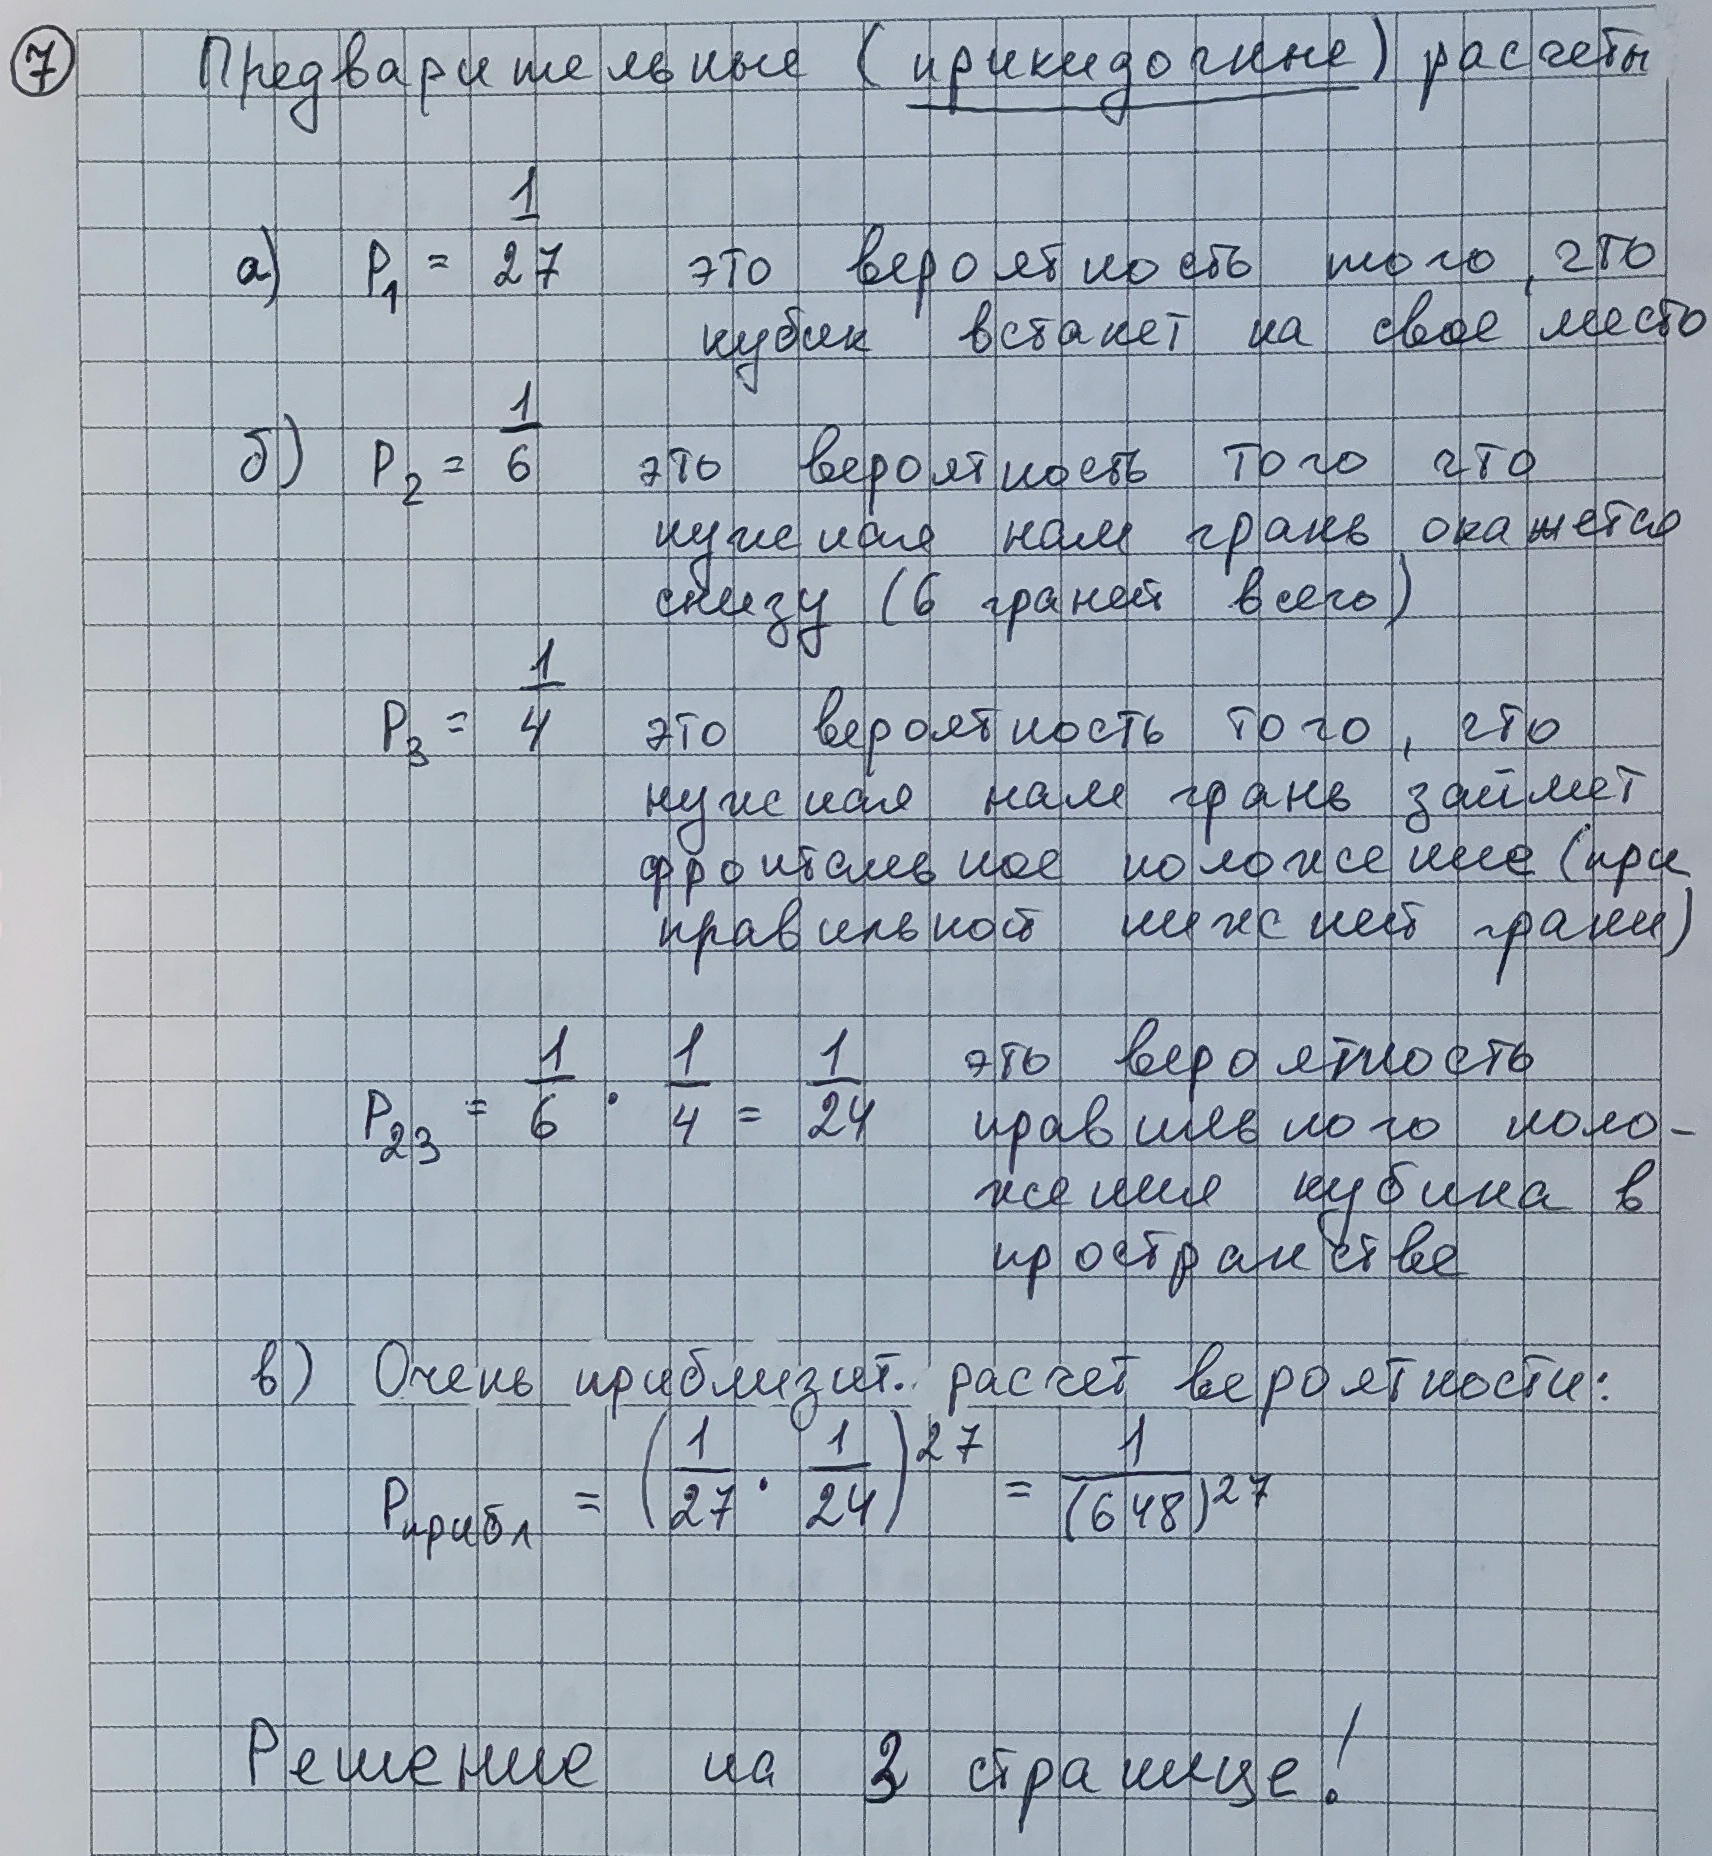 7 Предварительные (прикидочные) расчеты
а) P₁ = 1/27 это вероятность того, что
кубик встанет на свое место
б) P₂ = 1/6 это вероятность того что
нужная нам грань окажется
снизу (6 граней всего)
P₃ = 1/4 это вероятность того, что
нужная нам грань займет
фронтальное положение (при
правильной нижней грани)
P₂₃ = 1/6 · 1/4 = 1/24 это вероятность
правильного поло-
жения кубика в
пространстве
в) Очень приблизит. расчет вероятности:
Pприбл = (1/27 · 1/24)²⁷ = 1/(648)²⁷
Решение на 3 странице!